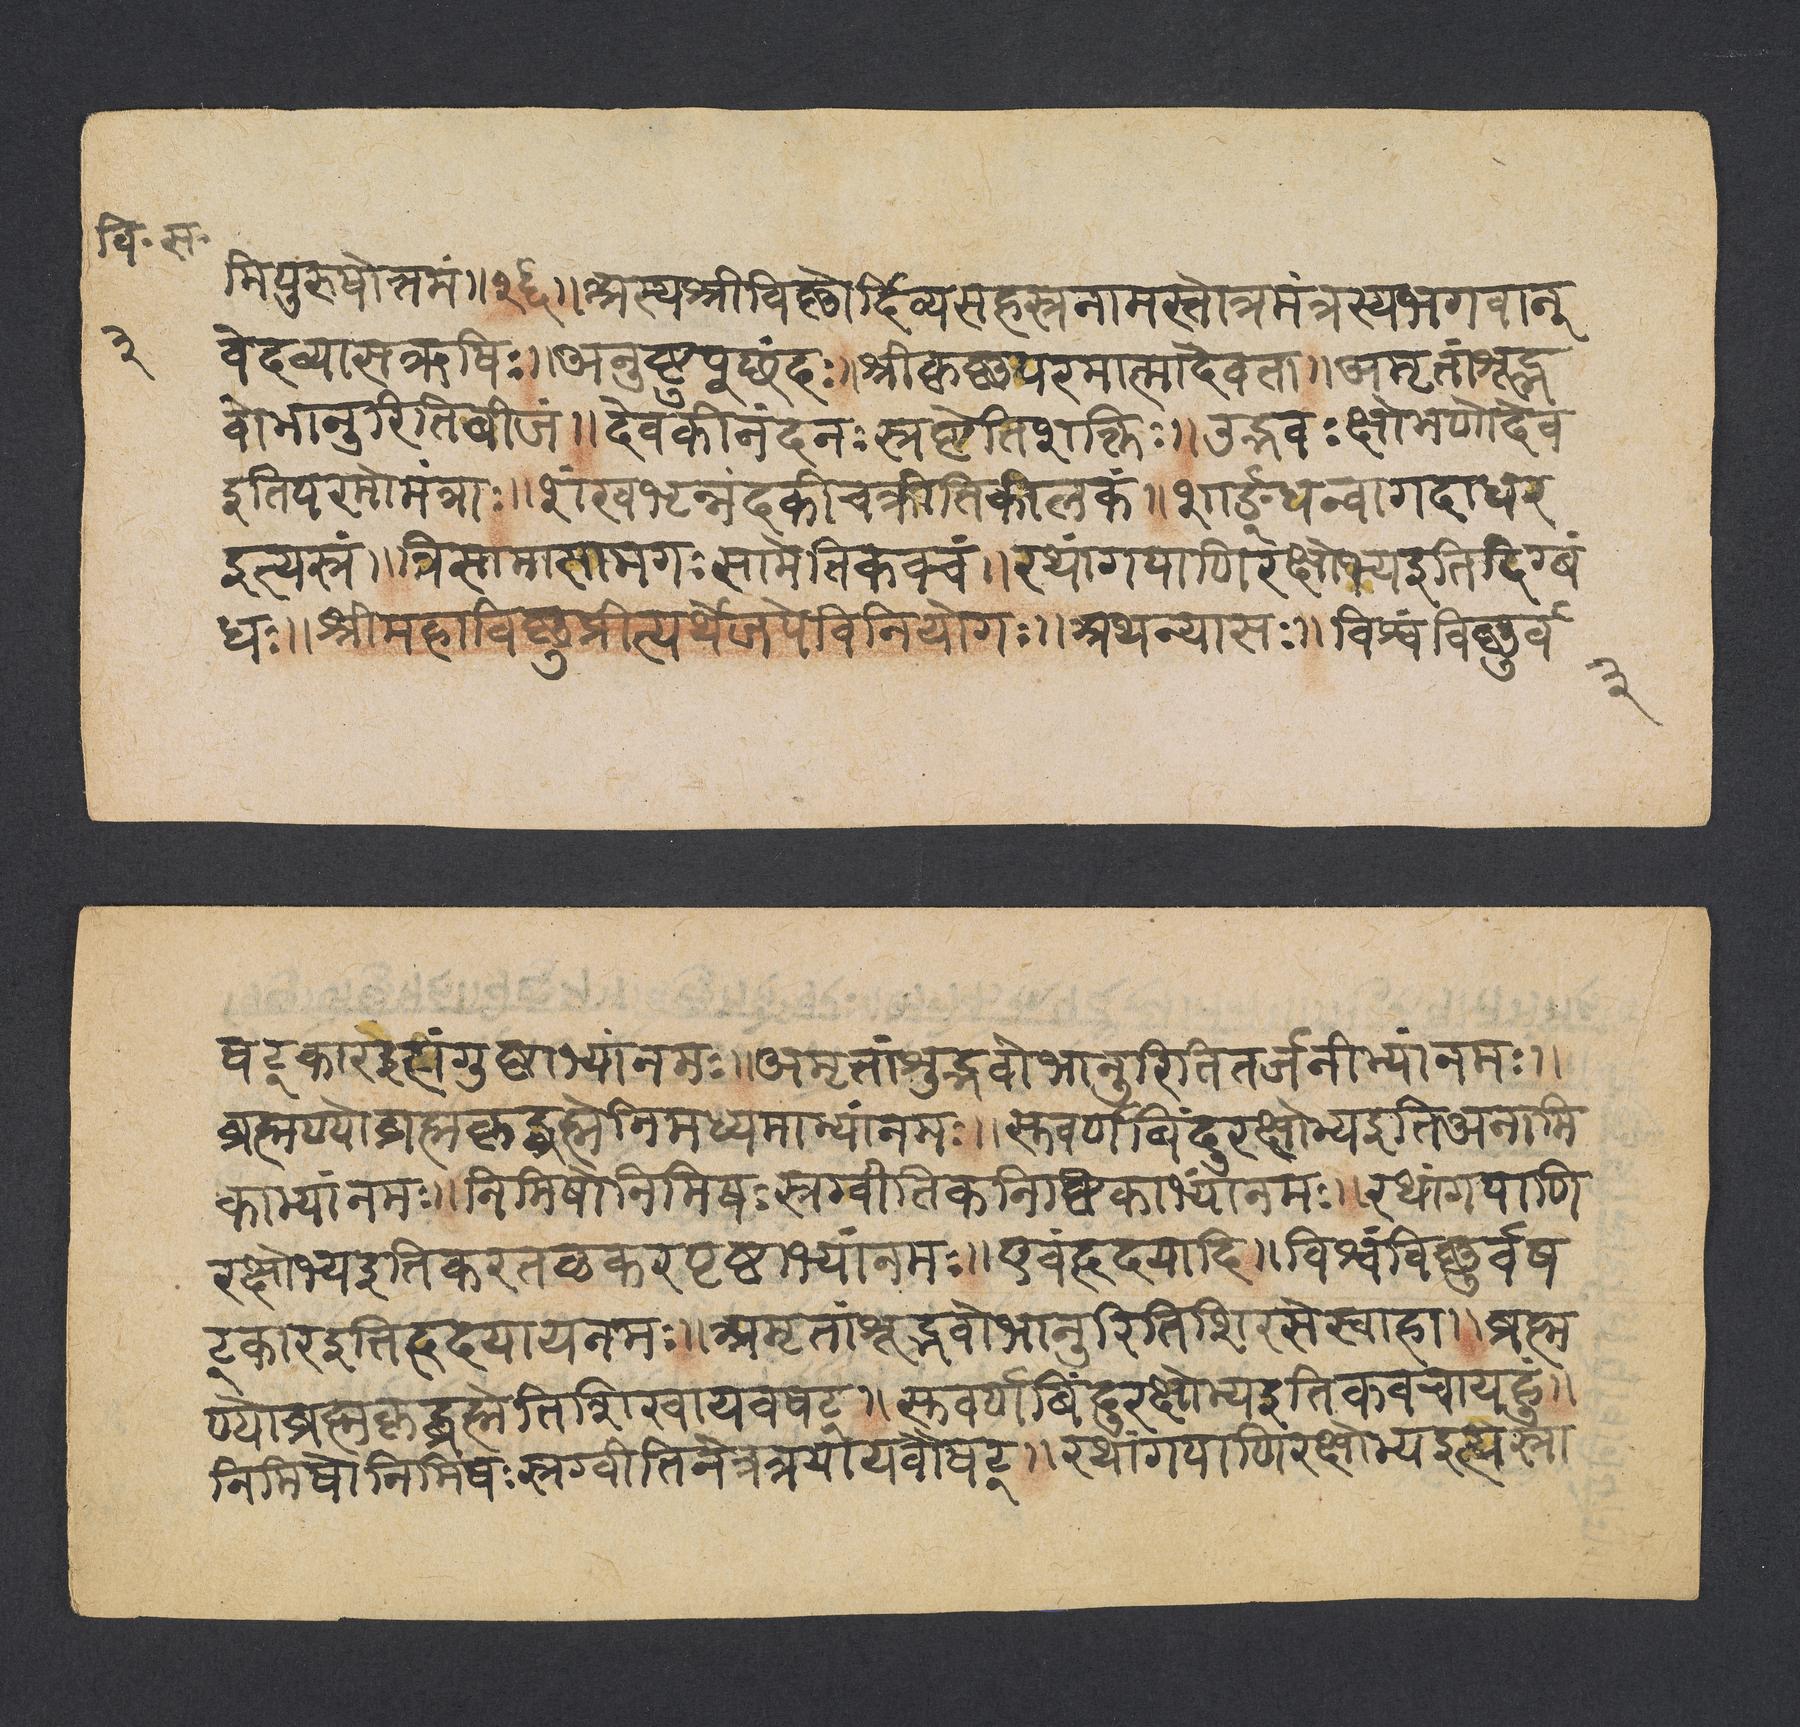 वि॰ स॰
मिपुरुषोत्तमं॥१६॥अस्यश्रीविष्णोर्दिव्यसहस्रनामस्तोत्रमंत्रस्यभगवान्
३
वेदव्यासऋषिः॥अनुष्टुप्छंदः॥श्रीकृष्णपरमात्मादेवता॥अमृतांशूद्भ
वोभानुरितिबीजं॥देवकीनंदनःस्रष्टेतिशक्तिः॥उद्भवःक्षोभणोदेव
इतिपरमोमंत्राः॥शंखभृन्नंदकीचक्रीतिकीलकं॥शार्ङ्गधन्वागदाधर
इत्यस्त्रं॥त्रिसामासामगःसामेतिकवचं॥रथांगपाणिरक्षोभ्यइतिदिग्बं
धः॥श्रीमहाविष्णुप्रीत्यर्थेजपेविनियोगः॥अथन्यासः॥विश्वंविष्णुर्व
३
षट्कारइत्यंगुष्ठाभ्यांनमः॥अमृतांशुद्भवोभानुरितितर्जनीभ्यांनमः॥
ब्रह्मण्योब्रह्मकृद्ब्रह्मेतिमध्यमाभ्यांनमः॥सुवर्णबिंदुरक्षोभ्यइतिअनामि
काभ्यांनमः॥निमिषोनिमिषःस्रग्वीतिकनिष्ठिकाभ्यांनमः॥रथांगपाणि
रक्षोभ्यइतिकरतळकरपृष्ठाभ्यांनमः॥एवंहृदयादि॥विश्वंविष्णुर्वष
ट्कारइतिहृदयायनमः॥अमृतांशूद्भवोभानुरितिशिरसेस्वाहा॥ब्रह्म
ण्योब्रह्मकृद्ब्रह्मेतिशिखायवषट्॥सुवर्णबिंदुरक्षोभ्यइतिकवचायहुं॥
निमिषोनिमिषःस्रग्वीतिनेत्रत्रयायवौषट्॥रथांगपाणिरक्षोभ्यइत्यस्त्रा